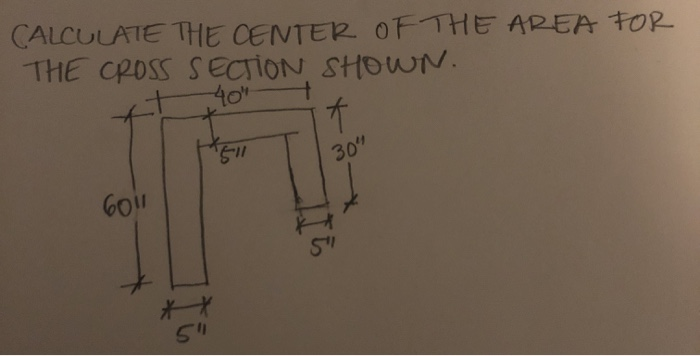 CALCULATE THE CENTER OF THE AREA FOR
THE CROSS SECTION SHOWN.
40"
5"
30"
60"
5"
5"